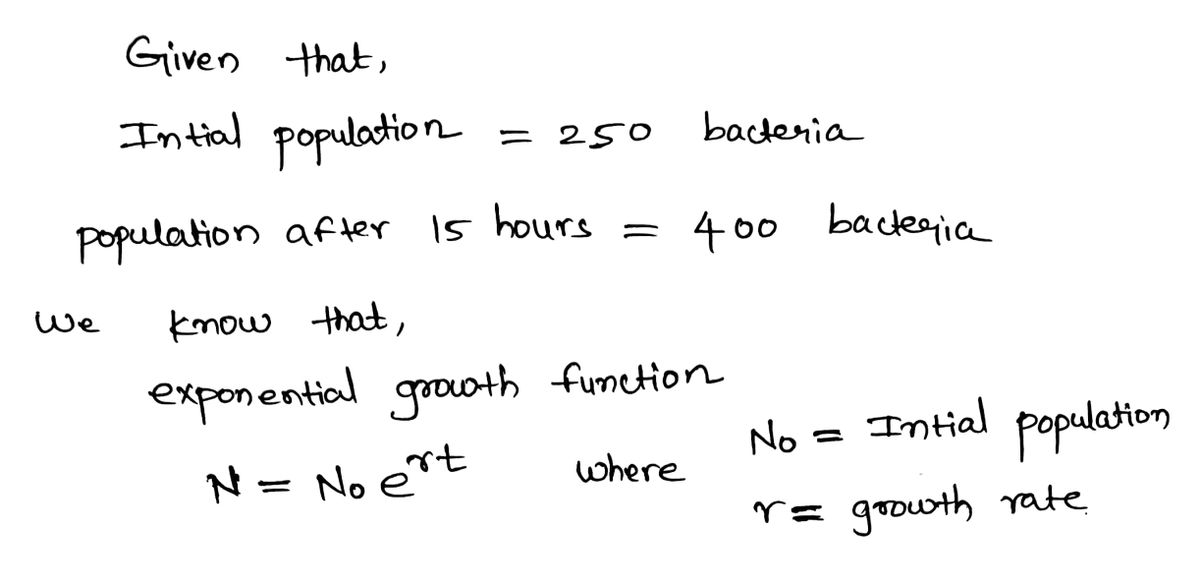 Given that,
Intial population = 250 bacteria
population after 15 hours = 400 bacteria
We know that,
exponential growth function
N = N₀ e^{rt} where N₀ = Intial population
r = growth rate